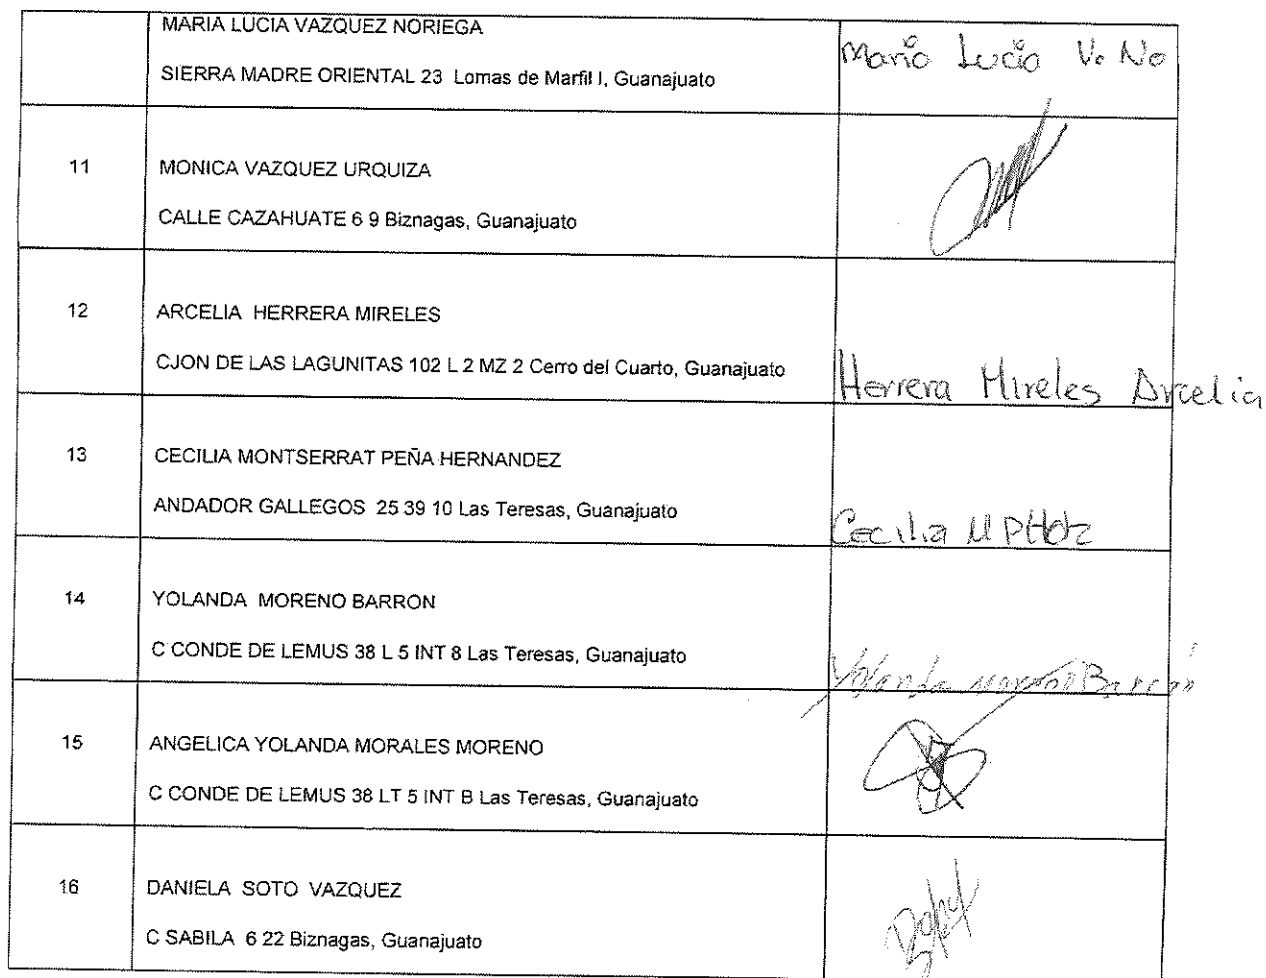 MARIA LUCIA VAZQUEZ NORIEGA
SIERRA MADRE ORIENTAL 23 Lomas de Marfil I, Guanajuato
Maria Lucia V. No
11
MONICA VAZQUEZ URQUIZA
CALLE CAZAHUATE 6 9 Biznagas, Guanajuato
12
ARCELIA HERRERA MIRELES
CJON DE LAS LAGUNITAS 102 L 2 MZ 2 Cerro del Cuarto, Guanajuato
Herrera Mireles Arcelia
13
CECILIA MONTSERRAT PEÑA HERNANDEZ
ANDADOR GALLEGOS 25 39 10 Las Teresas, Guanajuato
Cecilia M P Hdz
14
YOLANDA MORENO BARRON
C CONDE DE LEMUS 38 L 5 INT 8 Las Teresas, Guanajuato
Yolanda Moreno Barrón
15
ANGELICA YOLANDA MORALES MORENO
C CONDE DE LEMUS 38 LT 5 INT B Las Teresas, Guanajuato
16
DANIELA SOTO VAZQUEZ
C SABILA 6 22 Biznagas, Guanajuato